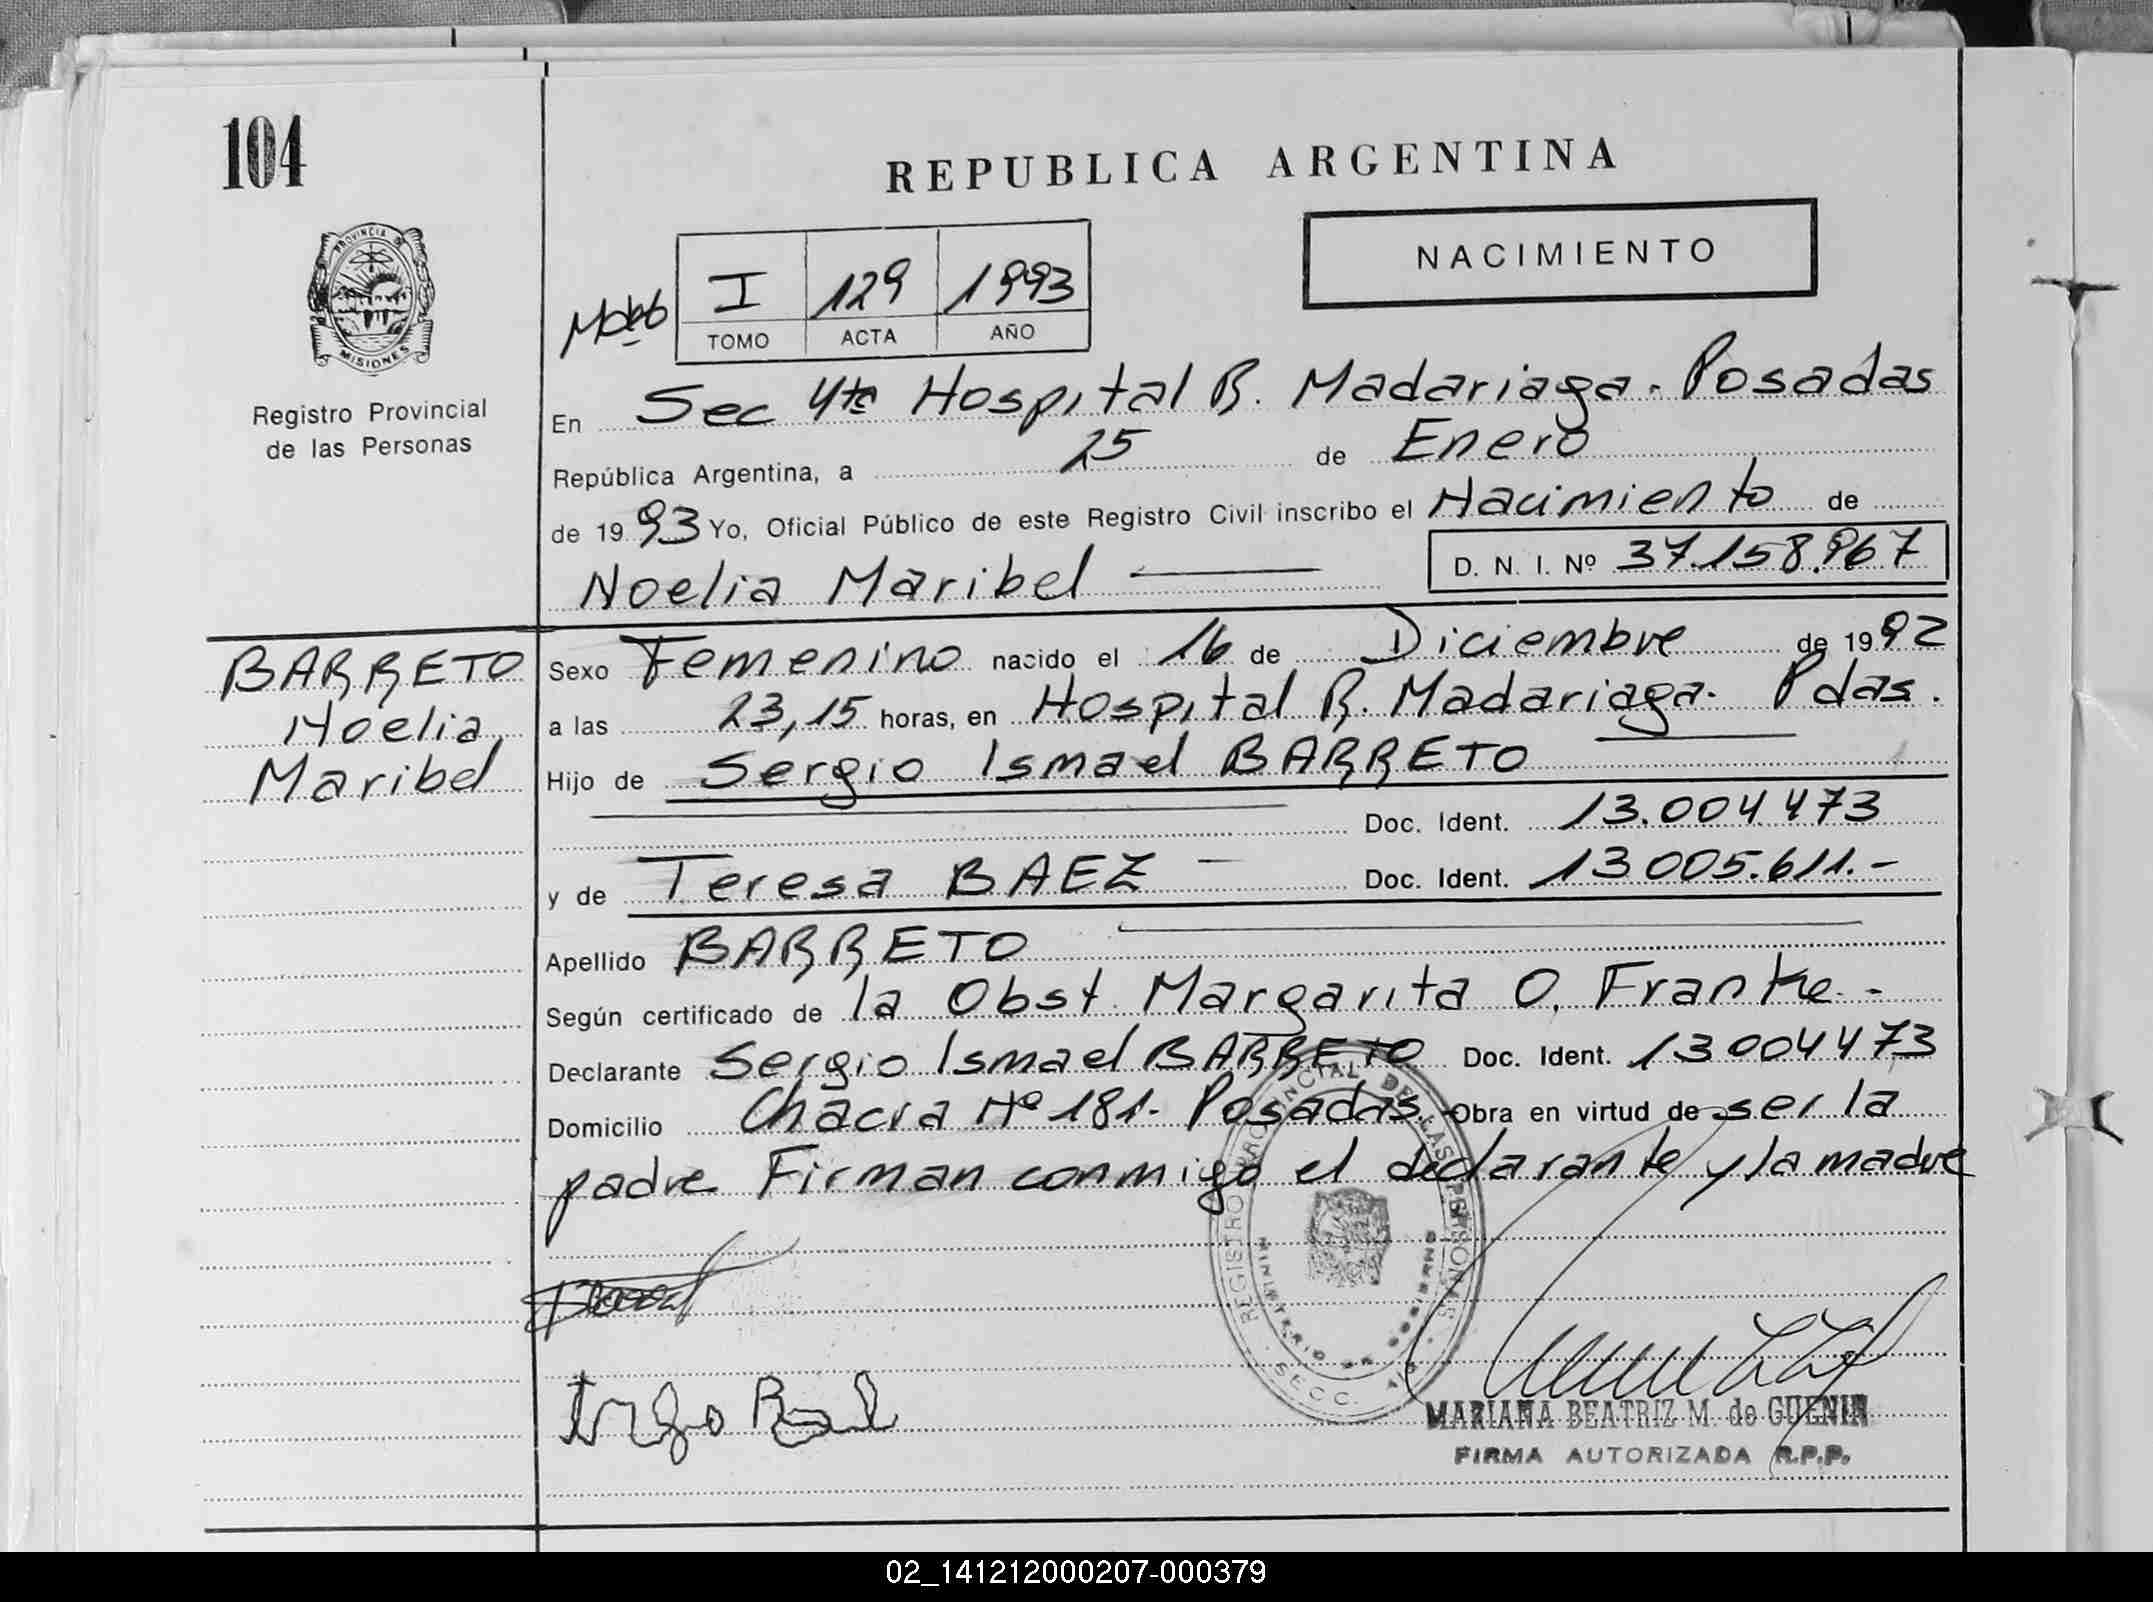 104
REPUBLICA ARGENTINA
NACIMIENTO
PROVINCIA DE
MISIONES
Registro Provincial
de las Personas
I 129 1993
TOMO ACTA AÑO
En Sec 4ta Hospital R. Madariaga. Posadas
República Argentina, a 25 de Enero
de 1993 Yo, Oficial Público de este Registro Civil inscribo el Nacimiento de
Noelia Maribel D. N. I. Nº 37.158.967
BARRETO
Noelia
Maribel
Sexo Femenino nacido el 16 de Diciembre de 1992
a las 23,15 horas, en Hospital R. Madariaga. Pdas.
Hijo de Sergio Ismael BARRETO
Doc. Ident. 13.004.473
y de Teresa BAEZ — Doc. Ident. 13005.611.-
Apellido BARRETO
Según certificado de la Obst. Margarita O. Franke.-
Declarante Sergio Ismael BARRETO Doc. Ident. 13004473
Domicilio Chacra Nº 181. Posadas. Obra en virtud de ser la
padre Firman conmigo el declarante y la madre
REGISTRO PROVINCIAL DE LAS PERSONAS
MINISTERIO DE GOBIERNO
SECC.
MARIANA BEATRIZ M. de GUENIN
FIRMA AUTORIZADA R.P.P.
02_141212000207-000379